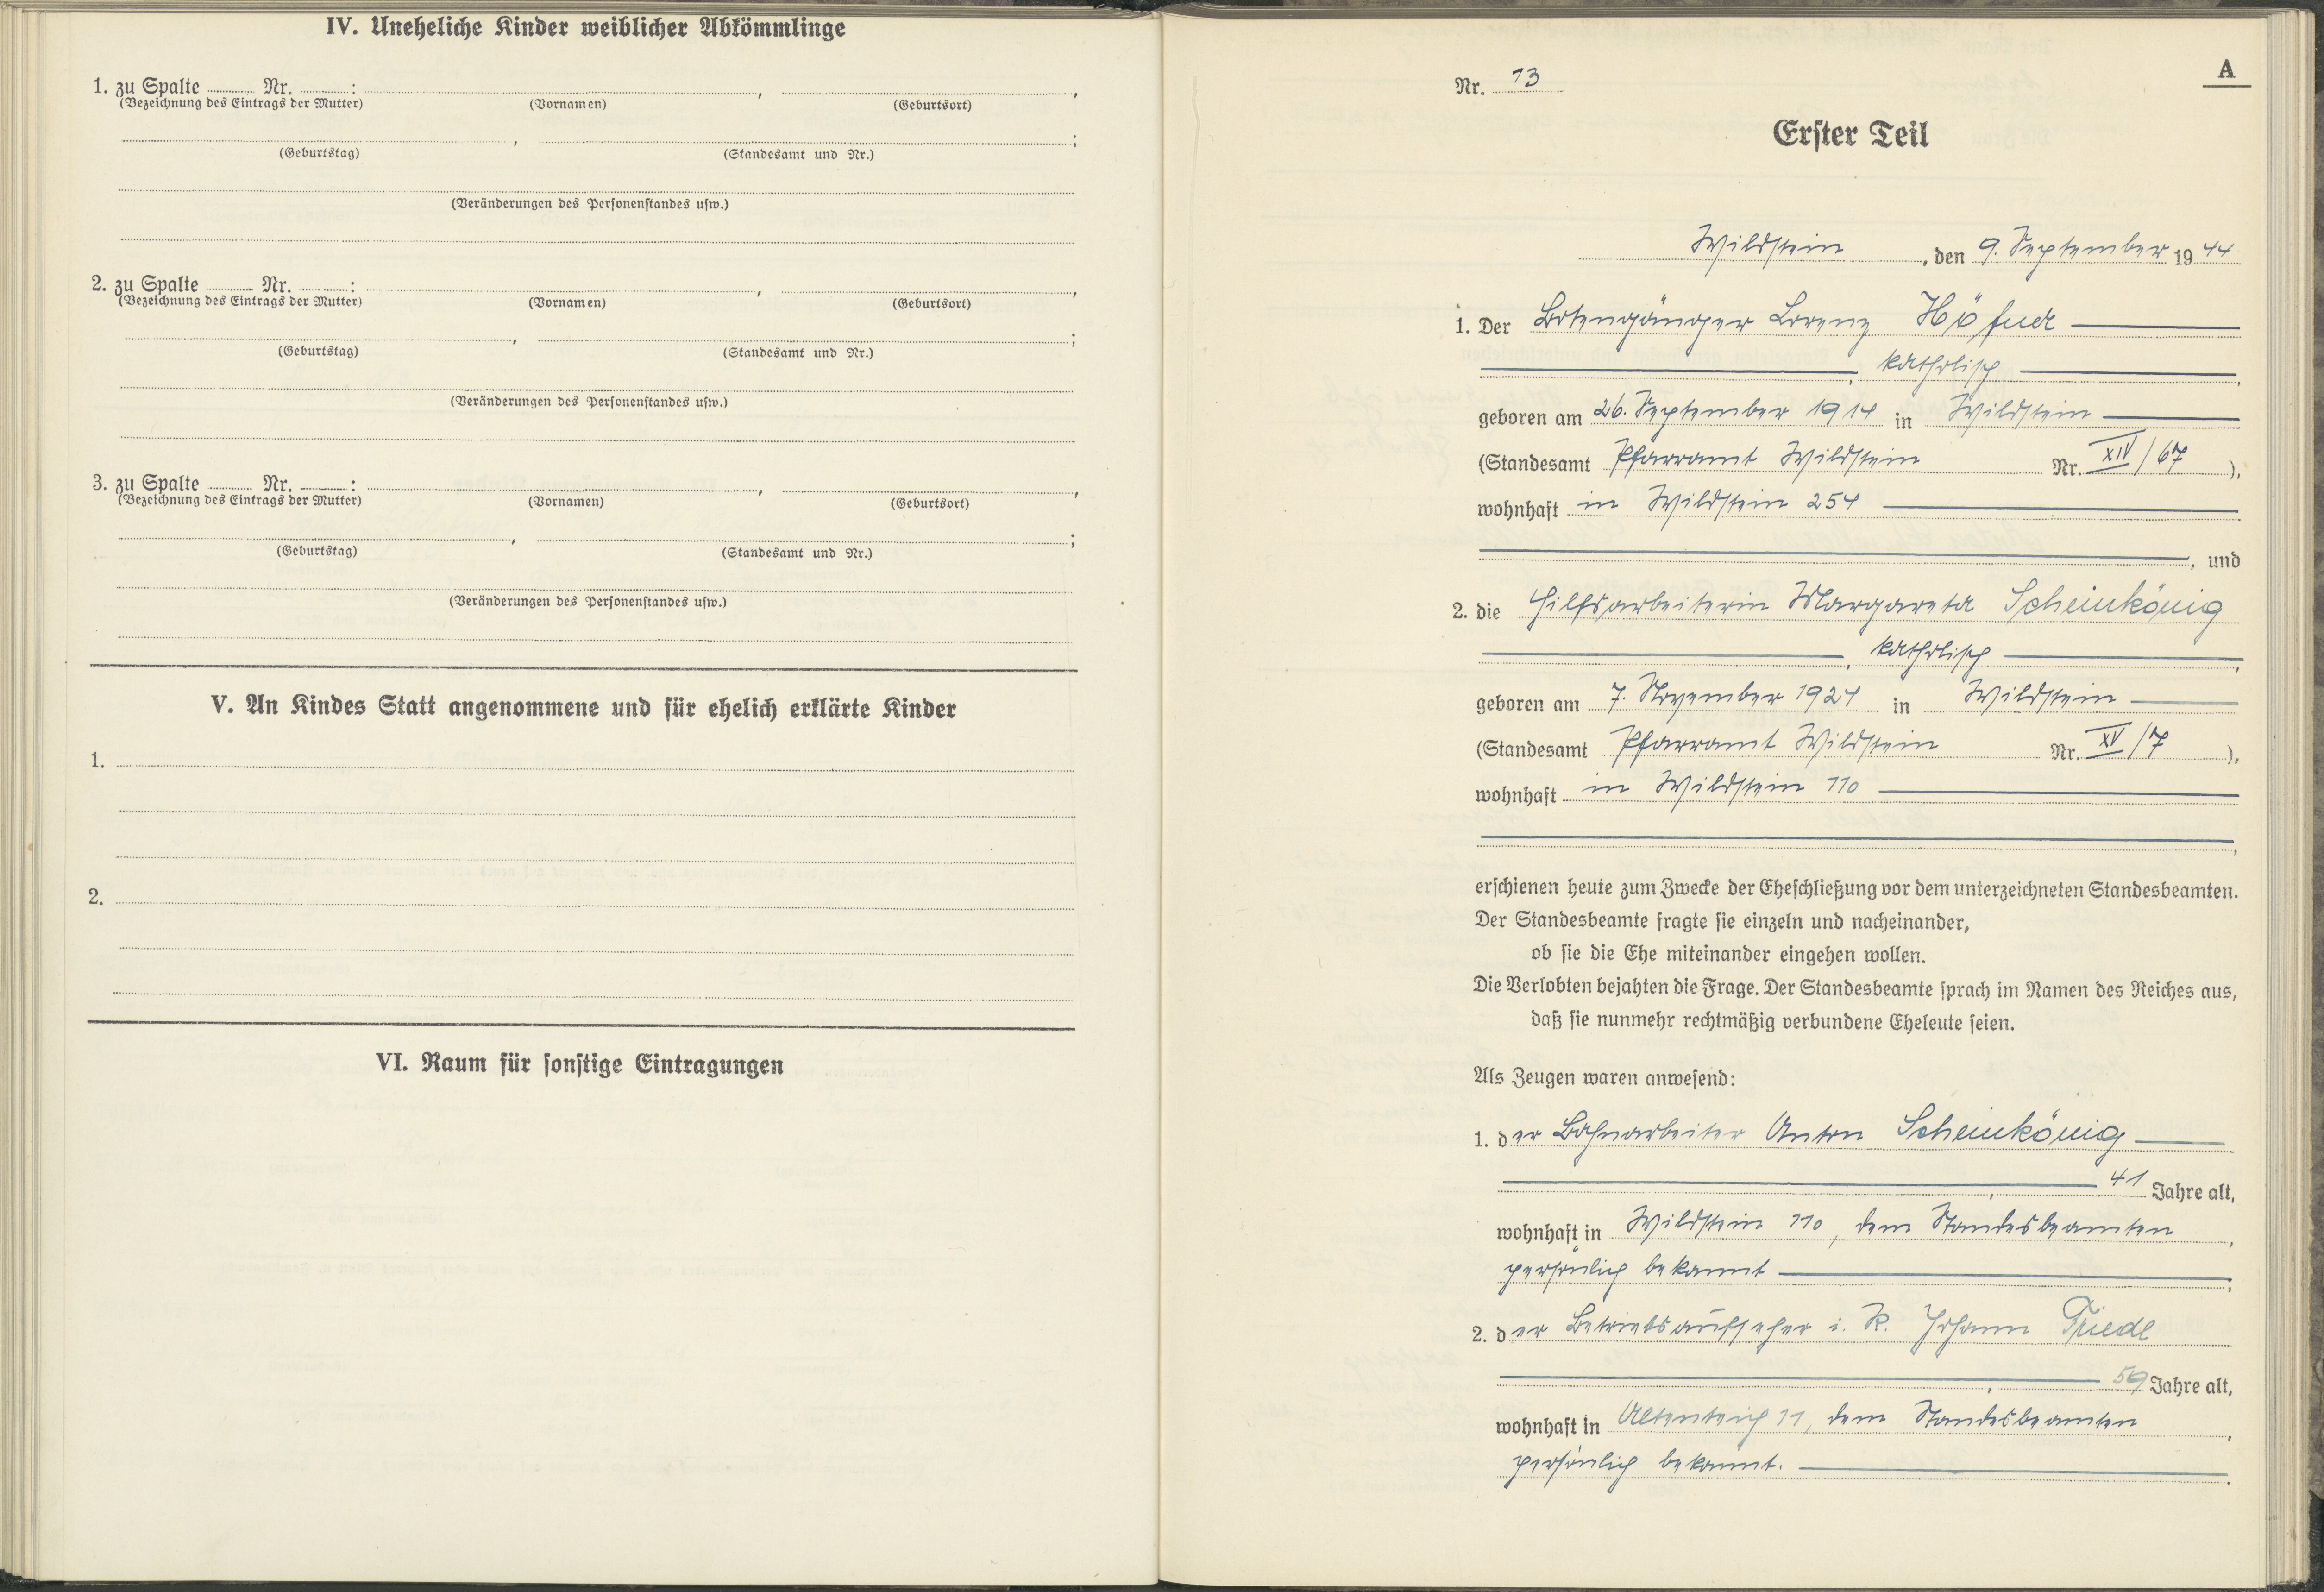 IV. Uneheliche Kinder weiblicher Abkömmlinge
1. zu Spalte Nr. :
(Bezeichnung des Eintrags der Mutter) (Vornamen) (Geburtsort)
(Geburtstag) (Standesamt und Nr.)
(Veränderungen des Personenstandes usw.)
2. zu Spalte Nr. :
(Bezeichnung des Eintrags der Mutter) (Vornamen) (Geburtsort)
(Geburtstag) (Standesamt und Nr.)
(Veränderungen des Personenstandes usw.)
3. zu Spalte Nr. :
(Bezeichnung des Eintrags der Mutter) (Vornamen) (Geburtsort)
(Geburtstag) (Standesamt und Nr.)
(Veränderungen des Personenstandes usw.)
V. An Kindes Statt angenommene und für ehelich erklärte Kinder
1.
2.
VI. Raum für sonstige Eintragungen
A
Nr. 13
Erster Teil
Wildstein, den 9. September 1944
1. Der Botengänger Lorenz Höfner
, katholisch,
geboren am 26. September 1914 in Wildstein
(Standesamt Pfarramt Wildstein Nr. XIV/67),
wohnhaft in Wildstein 254
, und
2. die Hilfsarbeiterin Margareta Scheinkönig
, katholisch,
geboren am 7. November 1924 in Wildstein
(Standesamt Pfarramt Wildstein Nr. XV/7),
wohnhaft in Wildstein 110
,
erschienen heute zum Zwecke der Eheschließung vor dem unterzeichneten Standesbeamten.
Der Standesbeamte fragte sie einzeln und nacheinander,
ob sie die Ehe miteinander eingehen wollen.
Die Verlobten bejahten die Frage. Der Standesbeamte sprach im Namen des Reiches aus,
daß sie nunmehr rechtmäßig verbundene Eheleute seien.
Als Zeugen waren anwesend:
1. der Bahnarbeiter Anton Scheinkönig
, 41 Jahre alt,
wohnhaft in Wildstein 110, dem Standesbeamten,
persönlich bekannt;
2. der Betriebsaufseher i. R. Johann Friedl
, 59 Jahre alt,
wohnhaft in Altenteich 11, dem Standesbeamten,
persönlich bekannt.